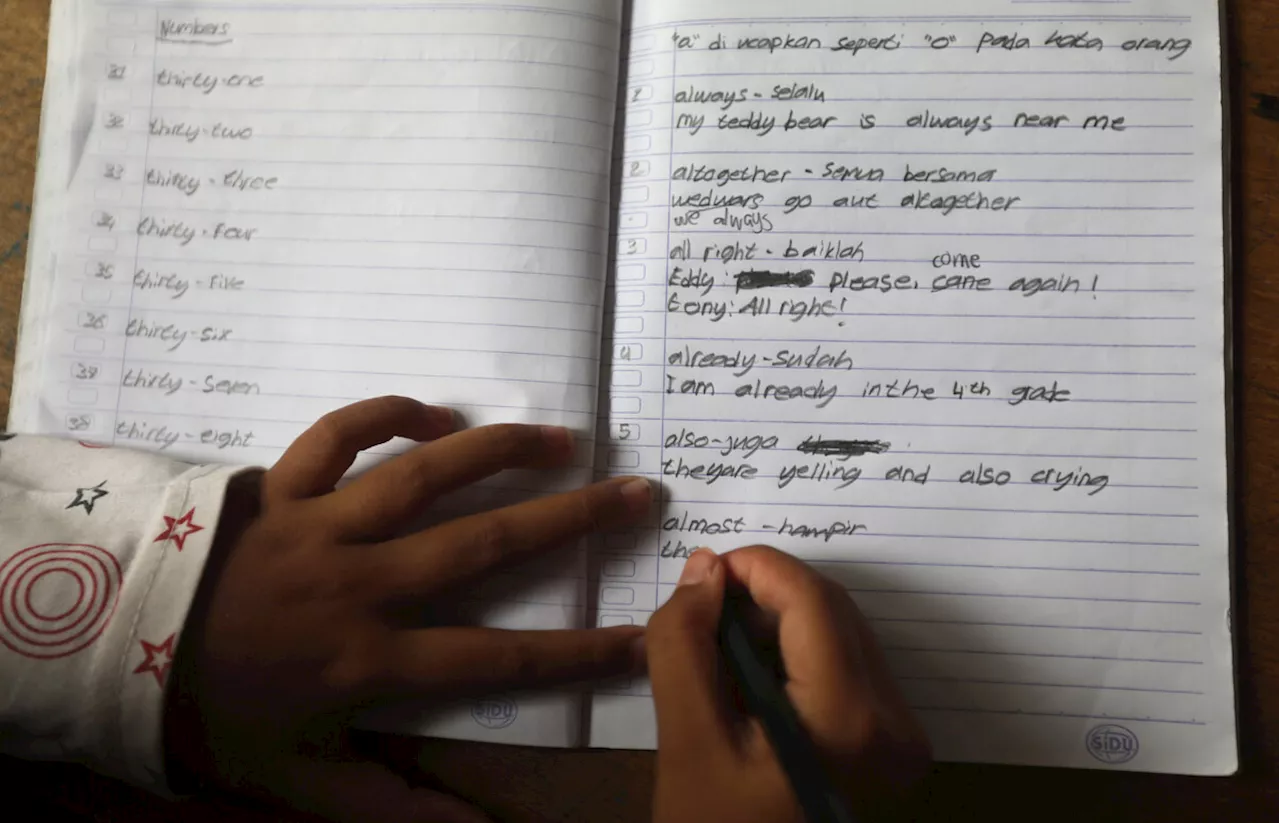 Numbers
31 thirty-one
32 thirty-two
33 thirty-three
34 thirty-four
35 thirty-five
36 thirty-six
37 thirty-seven
38 thirty-eight
"a" di ucapkan seperti "o" pada kata orang
1 always - selalu
my teddy bear is always near me
2 altogether - semua bersama
go aut altogether
we always
3 all right - baiklah
come
Eddy: please, came again!
tony: All right!
4 already - sudah
I am already in the 4th gade
5 also - juga
theyare yelling and also crying
almost - hampir
the
SIDU
SIDU